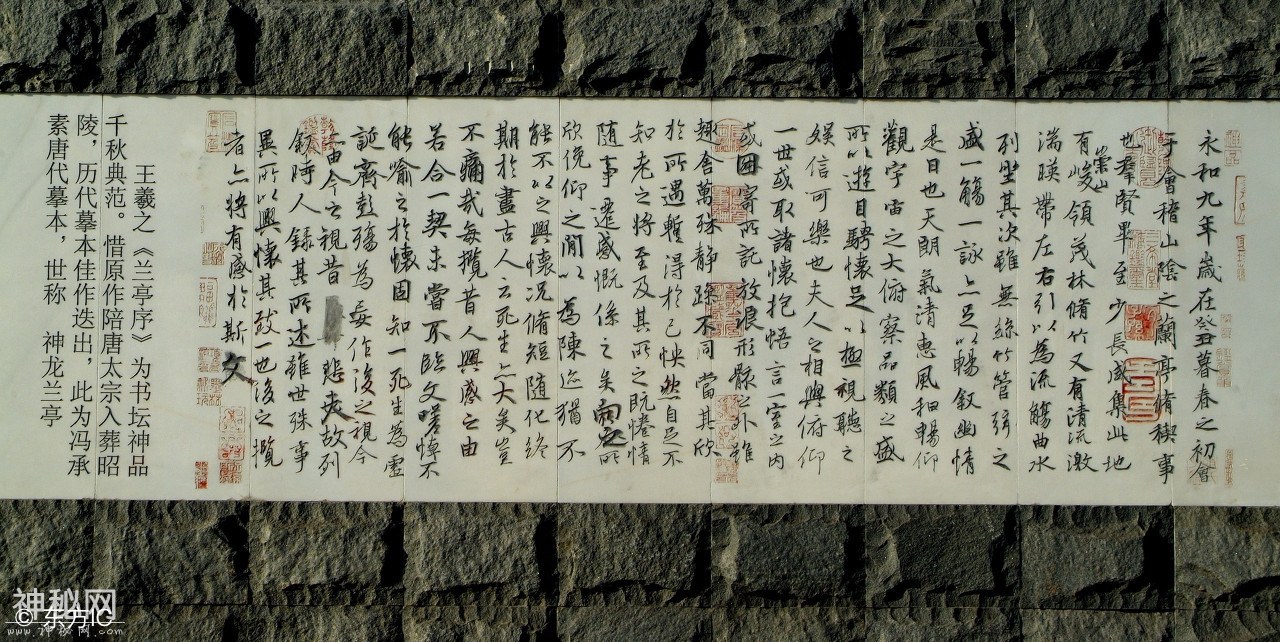 永和九年歲在癸丑暮春之初會
于會稽山陰之蘭亭脩稧事
也羣賢畢至少長咸集此地
有崇山峻領茂林脩竹又有清流激
湍暎帶左右引以為流觴曲水
列坐其次雖無絲竹管弦之
盛一觴一詠亦足以暢敘幽情
是日也天朗氣清惠風和暢仰
觀宇宙之大俯察品類之盛
所以遊目騁懷足以極視聽之
娛信可樂也夫人之相與俯仰
一世或取諸懷抱悟言一室之內
或因寄所託放浪形骸之外雖
趣舍萬殊靜躁不同當其欣
於所遇暫得於己怏然自足不
知老之將至及其所之既惓情
隨事遷感慨係之矣向之所
欣俛仰之閒以為陳迹猶不
能不以之興懷況脩短隨化終
期於盡古人云死生亦大矣豈
不痛哉每攬昔人興感之由
若合一契未嘗不臨文嗟悼不
能喻之於懷固知一死生為虛
誕齊彭殤為妄作後之視今
亦由今之視昔悲夫故列
敘時人錄其所述雖世殊事
異所以興懷其致一也後之攬
者亦將有感於斯文
王羲之《兰亭序》为书坛神品
千秋典范。惜原作陪唐太宗入葬昭
陵，历代摹本佳作迭出，此为冯承
素唐代摹本，世称 神龙兰亭
神秘网
© 东方IC
www.神秘网.com